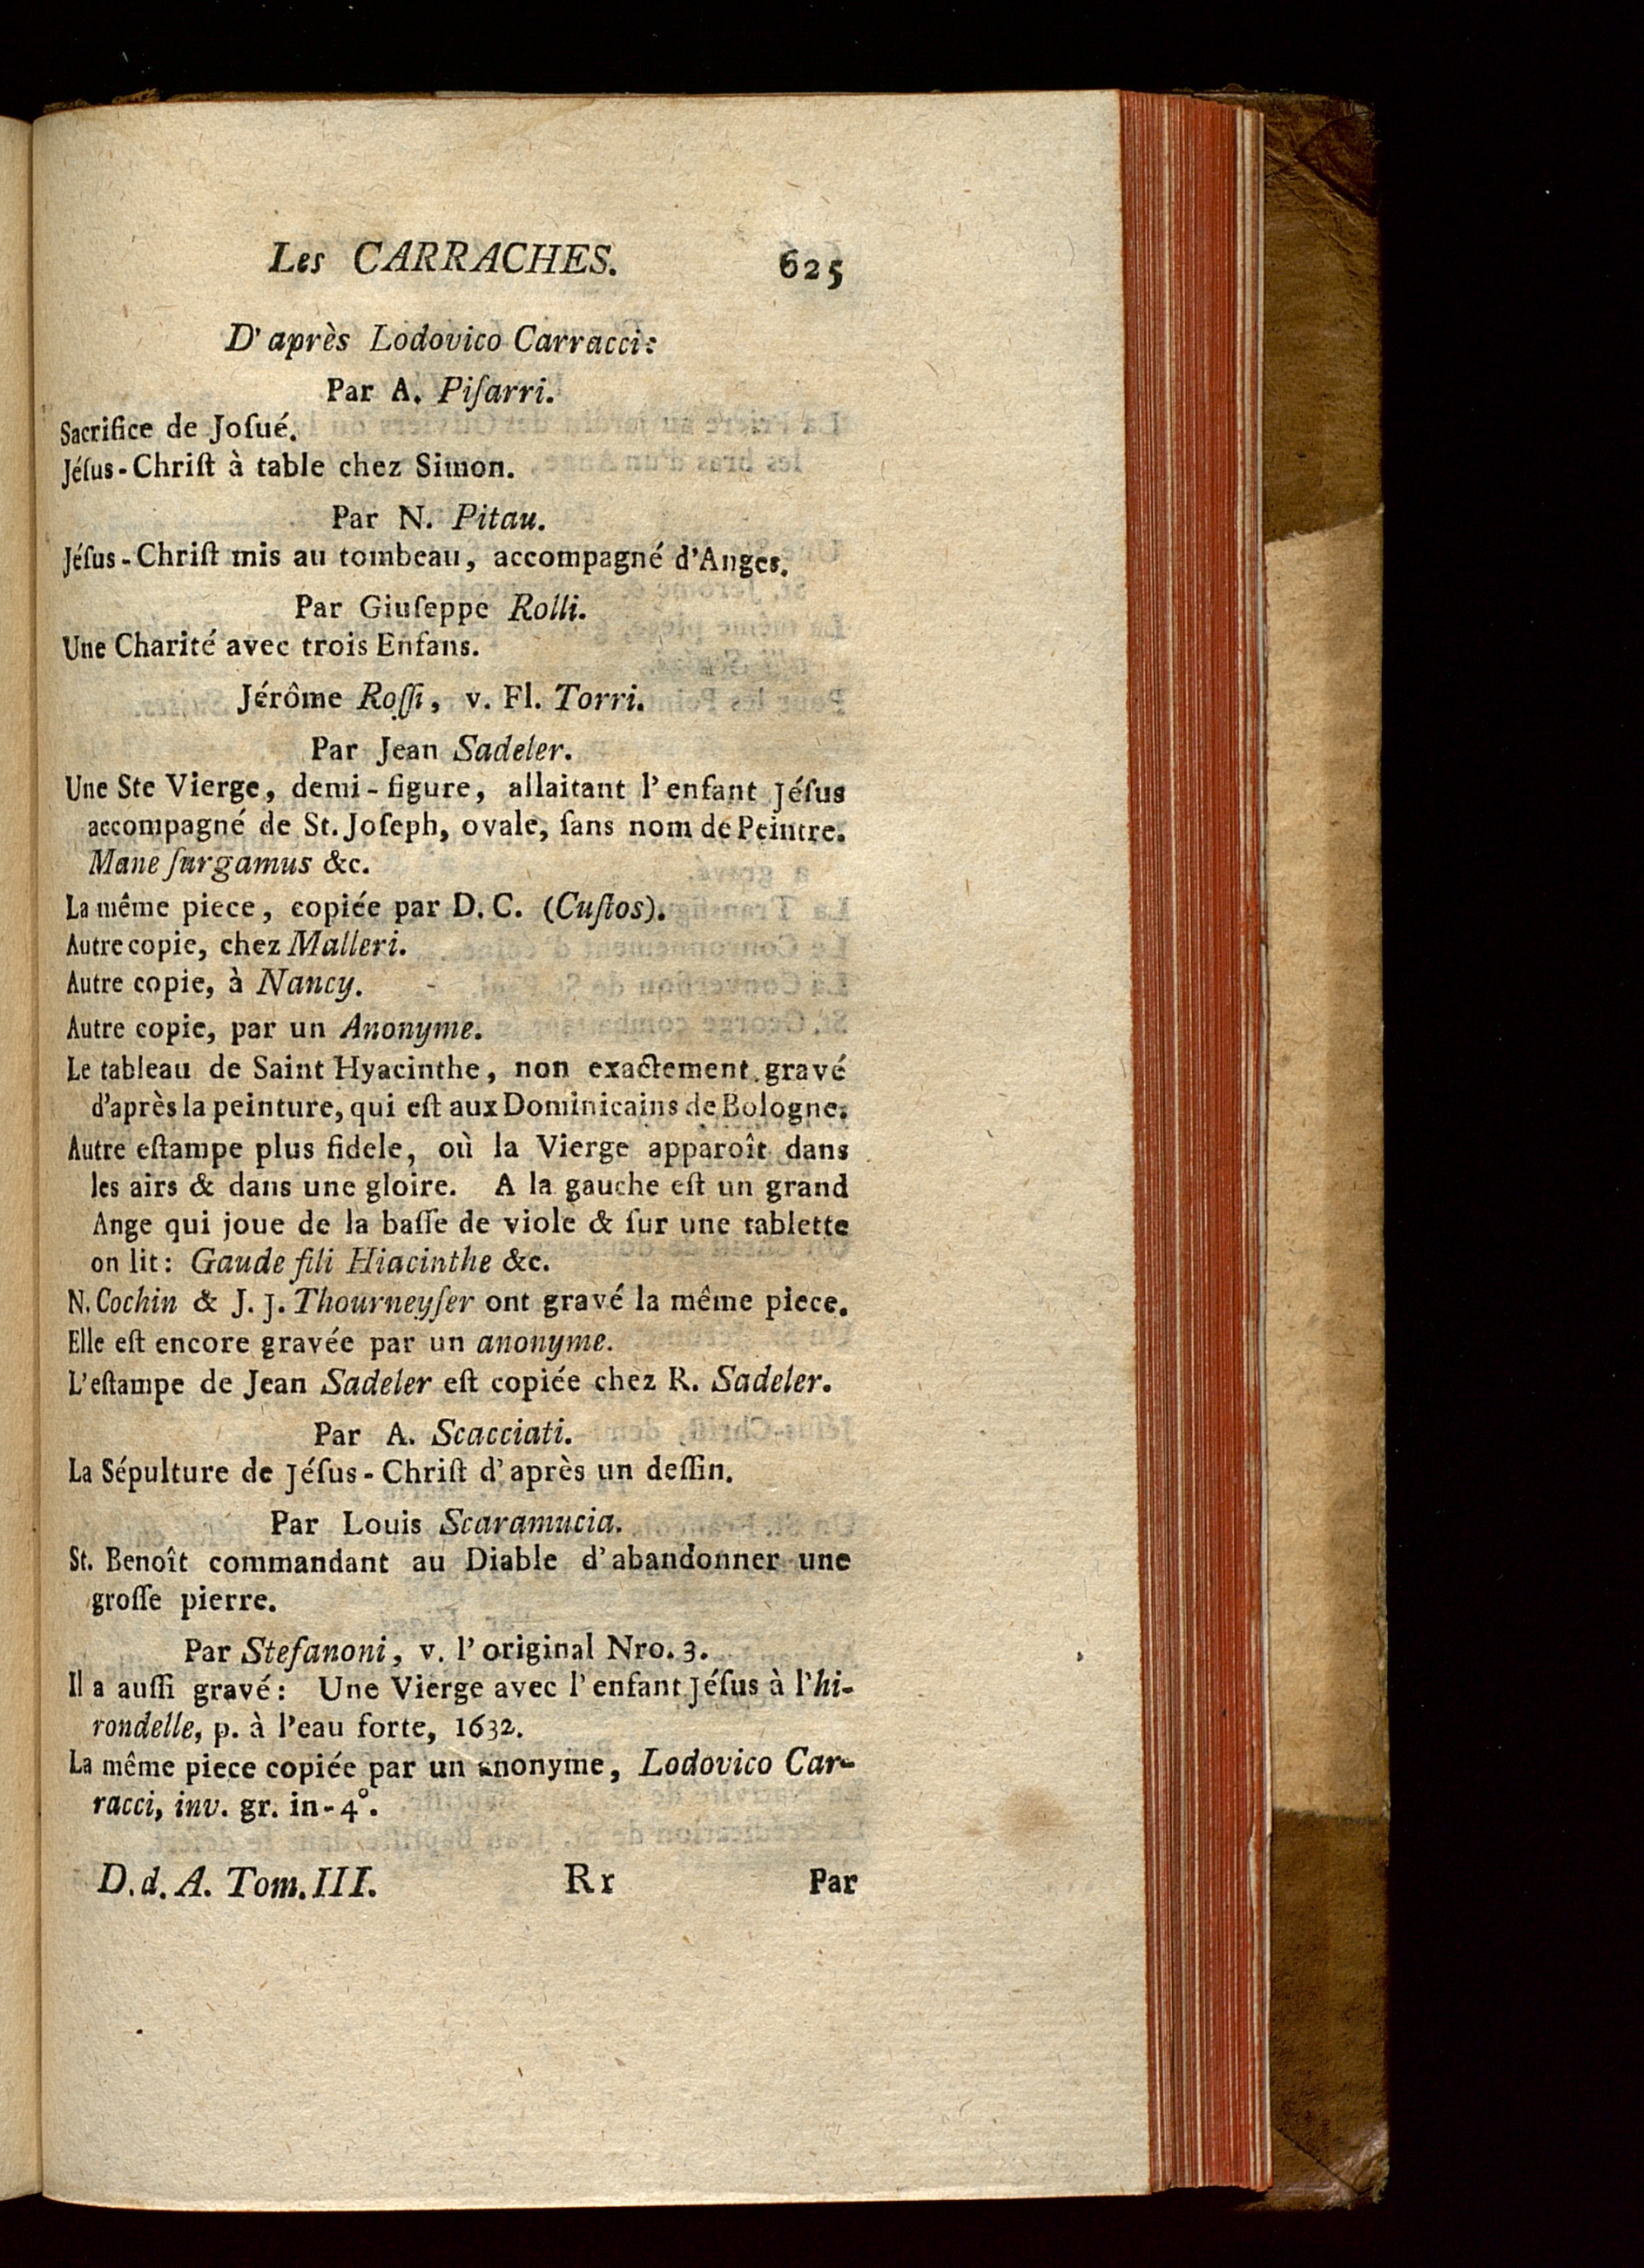 Les CARRACHES. 625
D'après Lodovico Carracci:
Par A. Piſarri.
Sacrifice de Joſué.
Jéſus-Chriſt à table chez Simon.
Par N. Pitau.
Jéſus-Chriſt mis au tombeau, accompagné d'Anges.
Par Giuſeppe Rolli.
Une Charité avec trois Enfans.
Jérôme Roſſi, v. Fl. Torri.
Par Jean Sadeler.
Une Ste Vierge, demi-figure, allaitant l'enfant Jéſus
accompagné de St. Joſeph, ovale, ſans nom de Peintre.
Mane ſurgamus &c.
La même piece, copiée par D. C. (Cuſtos).
Autre copie, chez Malleri.
Autre copie, à Nancy.
Autre copie, par un Anonyme.
Le tableau de Saint Hyacinthe, non exactement gravé
d'après la peinture, qui eſt aux Dominicains de Bologne.
Autre eſtampe plus fidele, où la Vierge apparoît dans
les airs & dans une gloire. A la gauche eſt un grand
Ange qui joue de la baſſe de viole & ſur une tablette
on lit: Gaude fili Hiacinthe &c.
N. Cochin & J. J. Thourneyſer ont gravé la même piece.
Elle eſt encore gravée par un anonyme.
L'eſtampe de Jean Sadeler eſt copiée chez R. Sadeler.
Par A. Scacciati.
La Sépulture de Jéſus-Chriſt d'après un deſſin.
Par Louis Scaramucia.
St. Benoît commandant au Diable d'abandonner une
groſſe pierre.
Par Stefanoni, v. l'original Nro. 3.
Il a auſſi gravé: Une Vierge avec l'enfant Jéſus à l'hi-
rondelle, p. à l'eau forte, 1632.
La même piece copiée par un anonyme, Lodovico Car-
racci, inv. gr. in-4°.
D. d. A. Tom. III. Rr Par